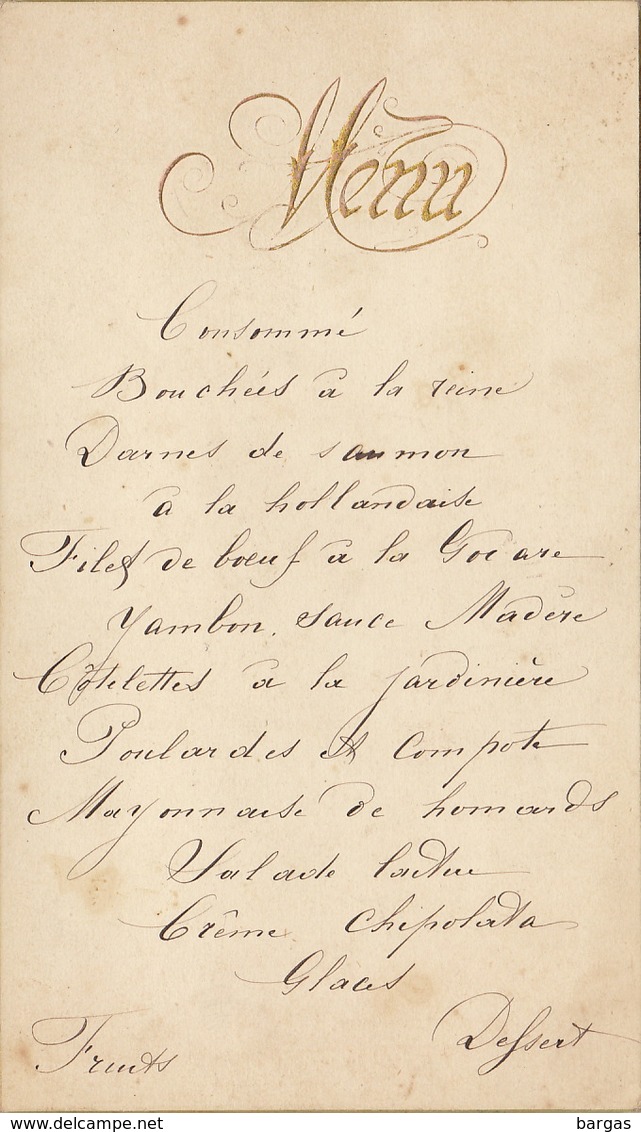 Menu
Consommé
Bouchées à la reine
Darnes de saumon
à la hollandaise
Filet de bœuf à la Godare
Jambon, sauce Madère
Côtelettes à la jardinière
Poulardes et compote
Mayonnaise de homards
Salade laitue
Crème Chipolata
Glaces
Fruits Dessert
www.delcampe.net
bargas